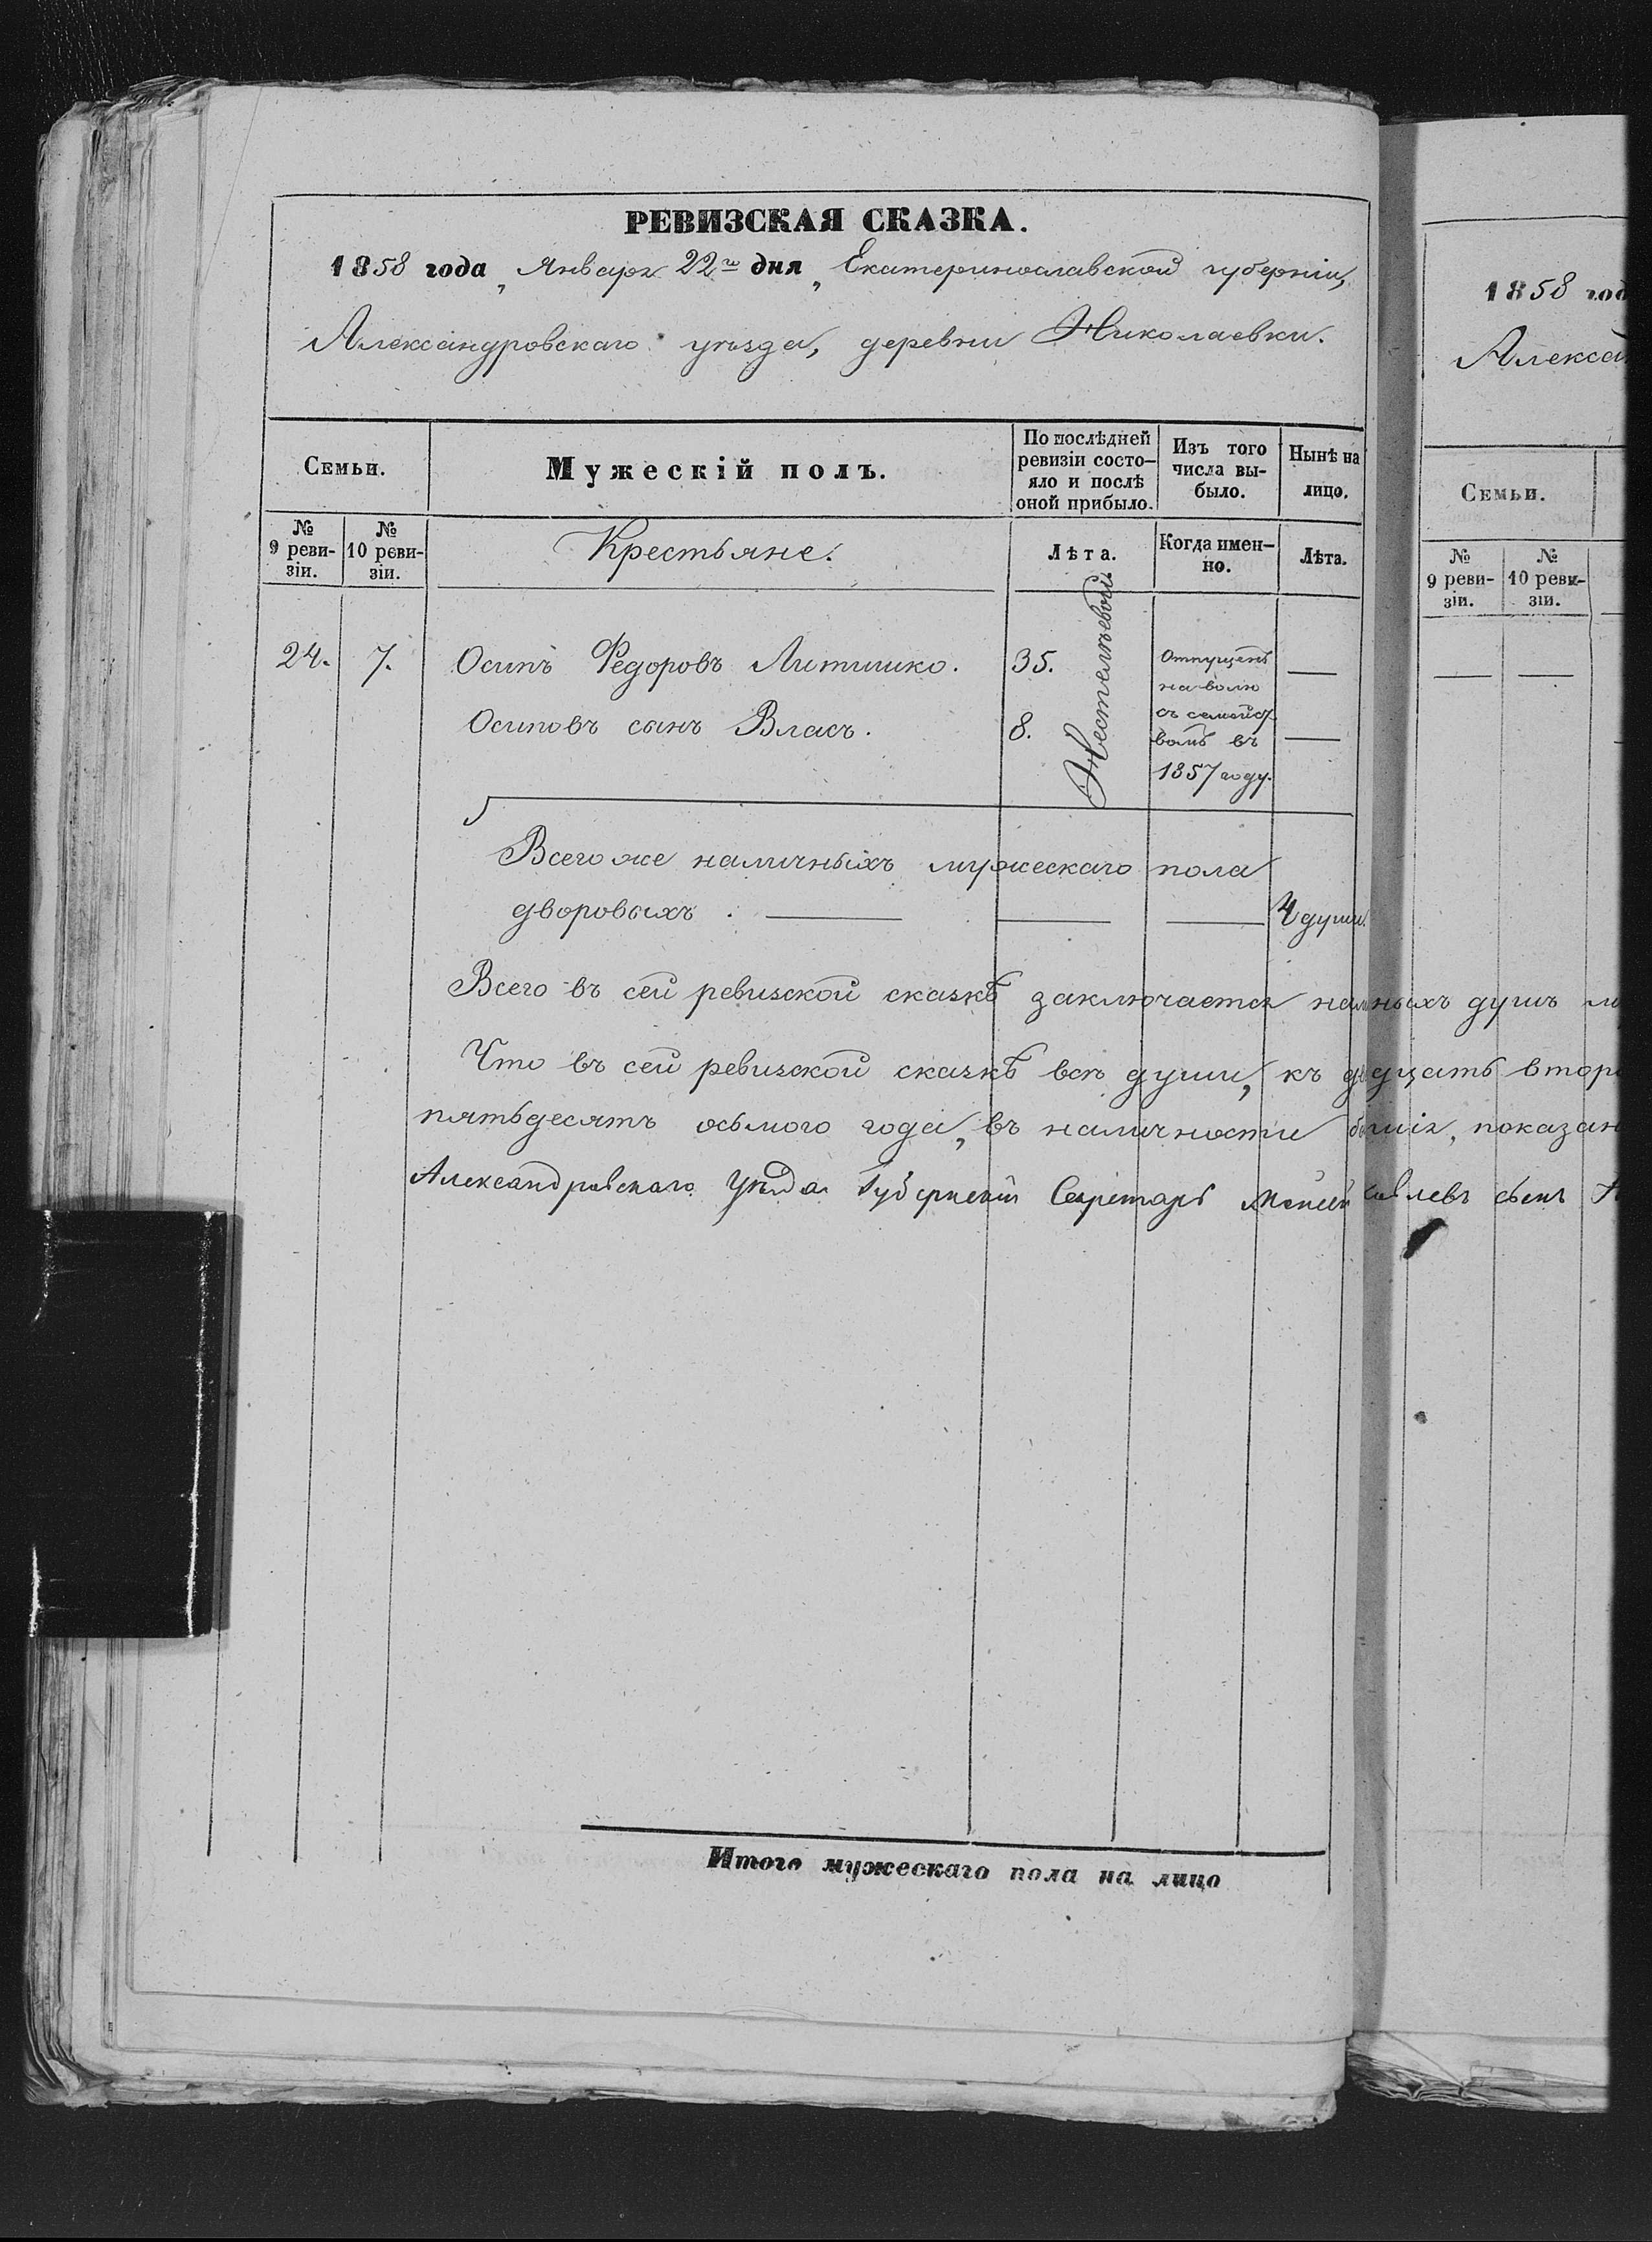 РЕВИЗСКАЯ СКАЗКА.
1858 года, Января 22го дня, Екатеринославской губерніи,
Александровскаго уѣзда, деревни Николаевки.
Семьи.
Мужескій полъ.
По послѣдней
ревизіи состо-
яло и послѣ
оной прибыло.
Изъ того
числа вы-
было.
Нынѣ на
лицо.
№
9 реви-
зіи.
№
10 реви-
зіи.
Крестьяне.
Лѣта.
Когда имен-
но.
Лѣта.
24. 7. Осипъ Федоровъ Литишко. 35. —
Осиповъ сынъ Власъ. 8. —
Отпущенъ
на волю
съ семейст
вомъ въ
1857 году.
Всего же наличныхъ мужескаго пола
дворовыхъ. — — — 4 души.
Всего въ сей ревизской сказкѣ заключается
душъ
Что въ сей ревизской сказкѣ всѣ души, къ
пятьдесятъ осьмого года, въ наличности показан
Александровскаго Уѣзда Губернскій Секретарь сынъ
Итого мужескаго пола на лицо
1858 год
Алексан
Семьи.
№
9 реви-
зіи.
№
10 реви-
зіи.
— —